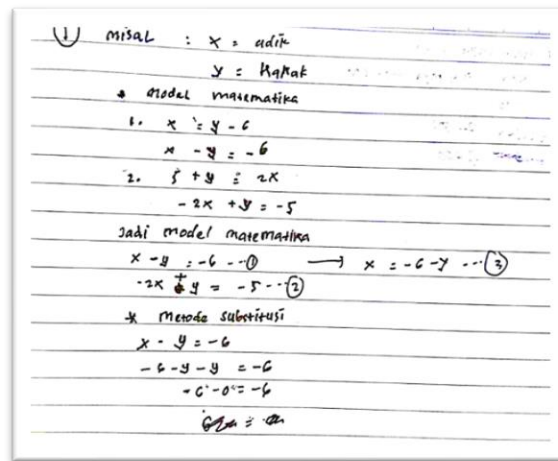 ① misal : x = adik
y = Kakak
* model matematika
1. x = y - 6
x - y = -6
2. 5 + y = 2x
- 2x + y = -5
Jadi model matematika
x - y = -6 --① → x = -6 - y --- ③
-2x + y = -5 -- ②
* Metode substitusi
x - y = -6
-6 - y - y = -6
-6 - 0 = -6